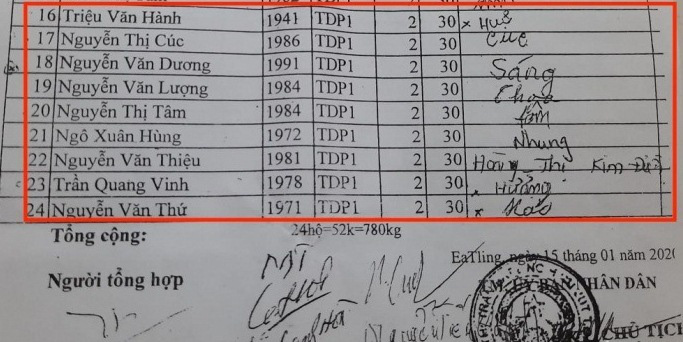 16 Triệu Văn Hành 1941 TDP1 2 30 x Huệ
17 Nguyễn Thị Cúc 1986 TDP1 2 30 Cúc
18 Nguyễn Văn Dương 1991 TDP1 2 30 Sáng
19 Nguyễn Văn Lượng 1984 TDP1 2 30
20 Nguyễn Thị Tâm 1984 TDP1 2 30 Tâm
21 Ngô Xuân Hùng 1972 TDP1 2 30 Nhung
22 Nguyễn Văn Thiệu 1981 TDP1 2 30 Hoàng Thị Kim
23 Trần Quang Vinh 1978 TDP1 2 30 x Hường
24 Nguyễn Văn Thứ 1971 TDP1 2 30 x
Tổng cộng: 24hộ=52k=780kg
EaTling, ngày 15 tháng 01 năm 2020
Người tổng hợp TM. ỦY BAN NHÂN DÂN
CHỦ TỊCH